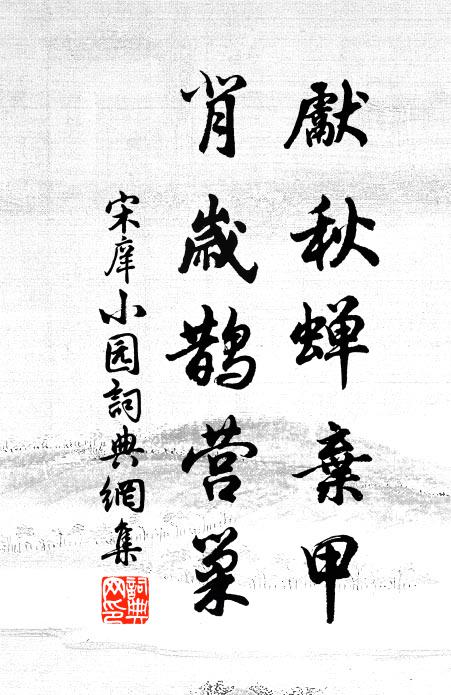 獻秋蝉棄甲
肖歲鵲营巢
宋庠小园詞典網集
詞典网印